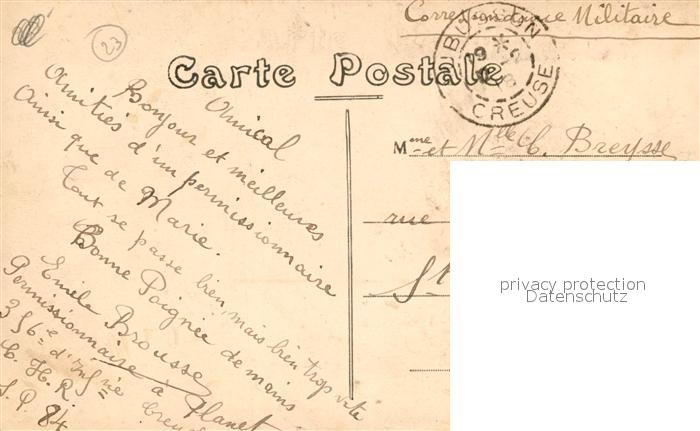 Correspondance Militaire
23
Carte Postale
BUSSEAU
CREUSE
Amical
Bonjour et meilleures
Amitiés d'un permissionnaire
Ainsi que de Marie.
Tout se passe bien, mais bien trop vite
Bonne Poignée de mains
Emile Brousse
Permissionnaire à Planet
Creuse
356e d'Infrie
C. H. R
S. P. 84
Mme et Mlle C. Breysse
rue
St
privacy protection
Datenschutz